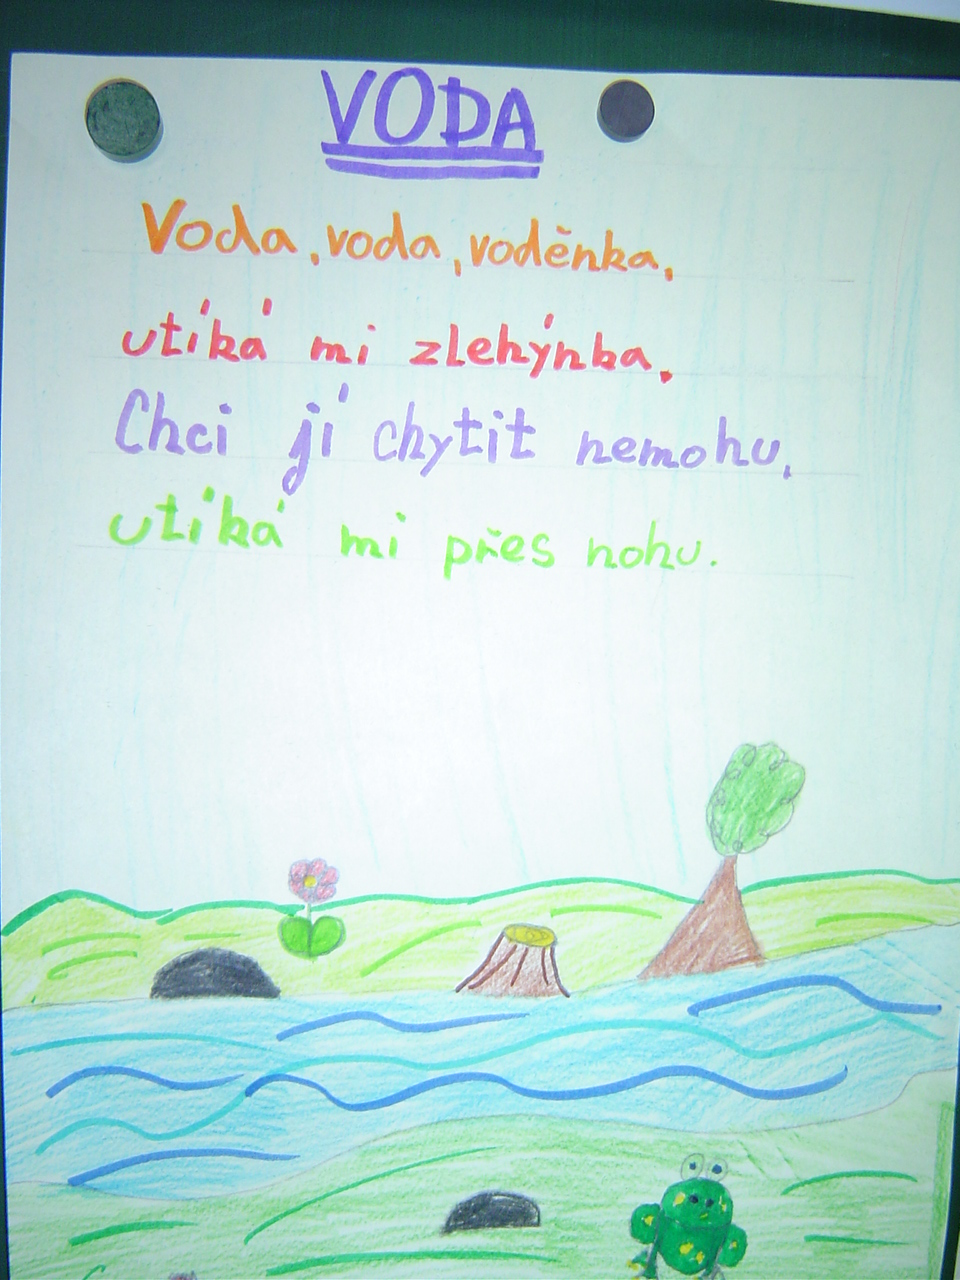 VODA
Voda, voda, voděnka,
utíká mi zlehýnka.
Chci jí chytit nemohu,
utíká mi přes nohu.